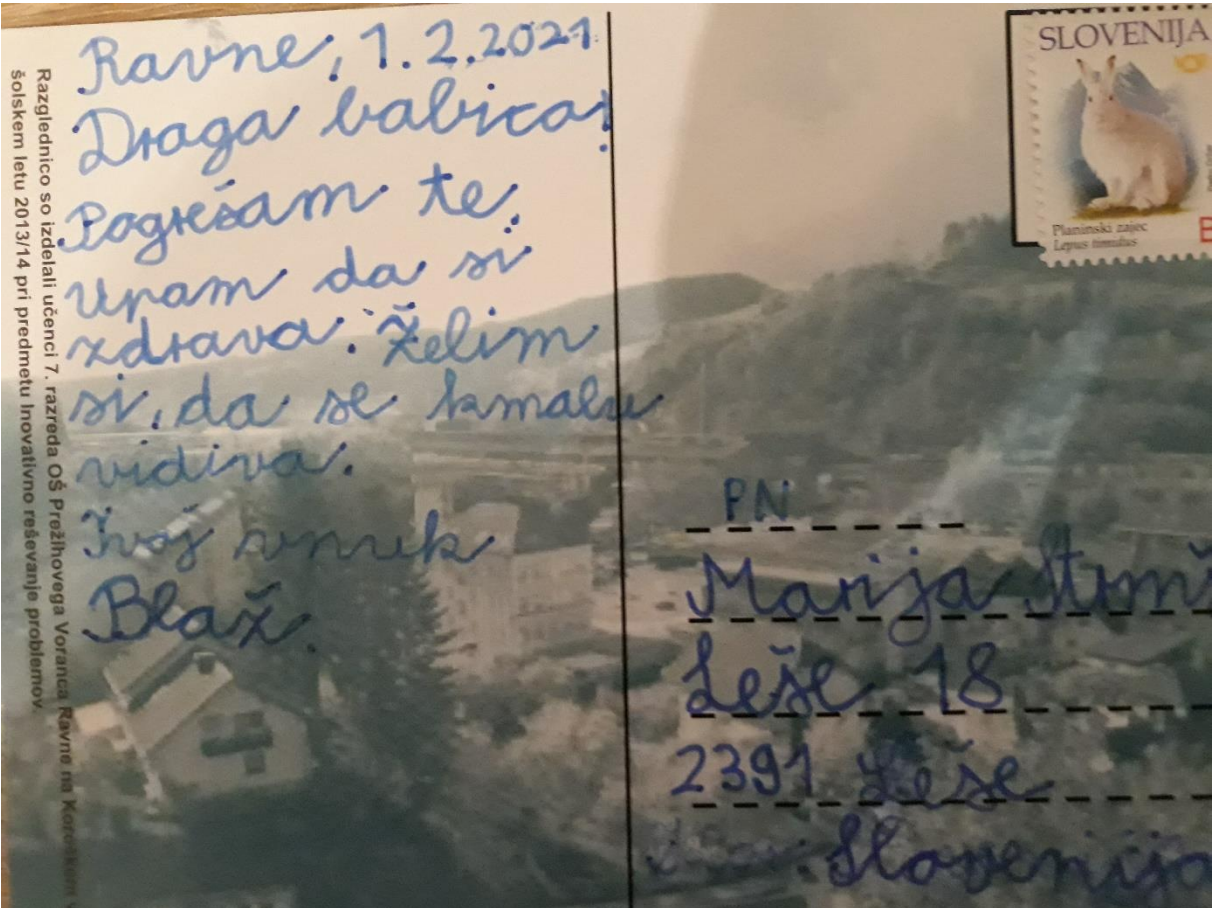 Ravne, 1.2.2021
Draga babica!
Pogrešam te.
Upam da si
zdrava. Želim
si, da se kmalu
vidiva.
Tvoj vnuk
Blaž.
Razglednico so izdelali učenci 7. razreda OŠ Prežihovega Voranca Ravne na Koroškem v
šolskem letu 2013/14 pri predmetu Inovativno reševanje problemov.
SLOVENIJA
Planinski zajec
Lepus timidus
B
PN
Marija
Leše 18
2391 Leše
Slovenija